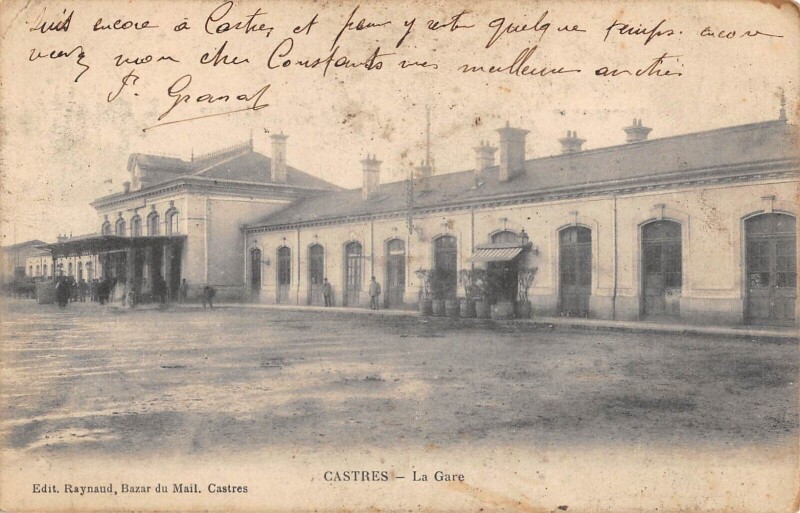 suis encore à Castres et pour y rester quelque temps. encore
mon cher Constant mes meilleures
P. Granat
CASTRES — La Gare
Edit. Raynaud, Bazar du Mail. Castres